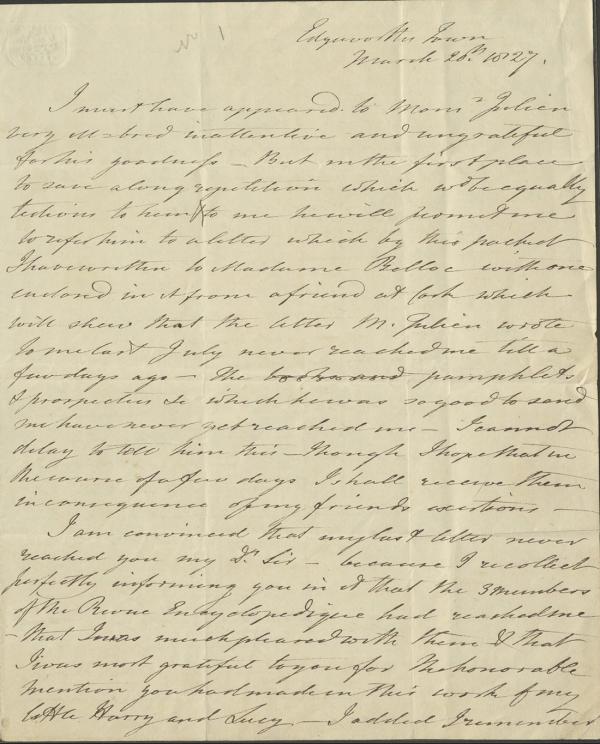 Edgeworths Town
March 20th 1827.
I must have appeared to Monsr Julien
very ill=bred inattentive and ungrateful
for his goodness – But in the first place
to save a long repetition which wd be equally
tedious to him & to me he will permit me
to refer him to a letter which by this packet
I have written to Madame Belloc with one
enclosed in it from a friend at Cork which
will shew that the letter M. Julien wrote
to me last July never reached me till a
few days ago – The books and pamphlets
& prospectus &c which he was so good to send
me have never yet reached me – I cannot
delay to tell him this – though I hope that in
the course of a few days I shall receive them
in consequence of my friends exertions –
I am convinced that my last letter never
reached you my Dr Sir – because I recollect
perfectly informing you in it that the 3 numbers
of the Revue Encyclopedique had reached me
– that I was much pleased with them & that
I was most grateful to you for the honorable
mention you had made in this work of my
little Harry and Lucy – I added I remember